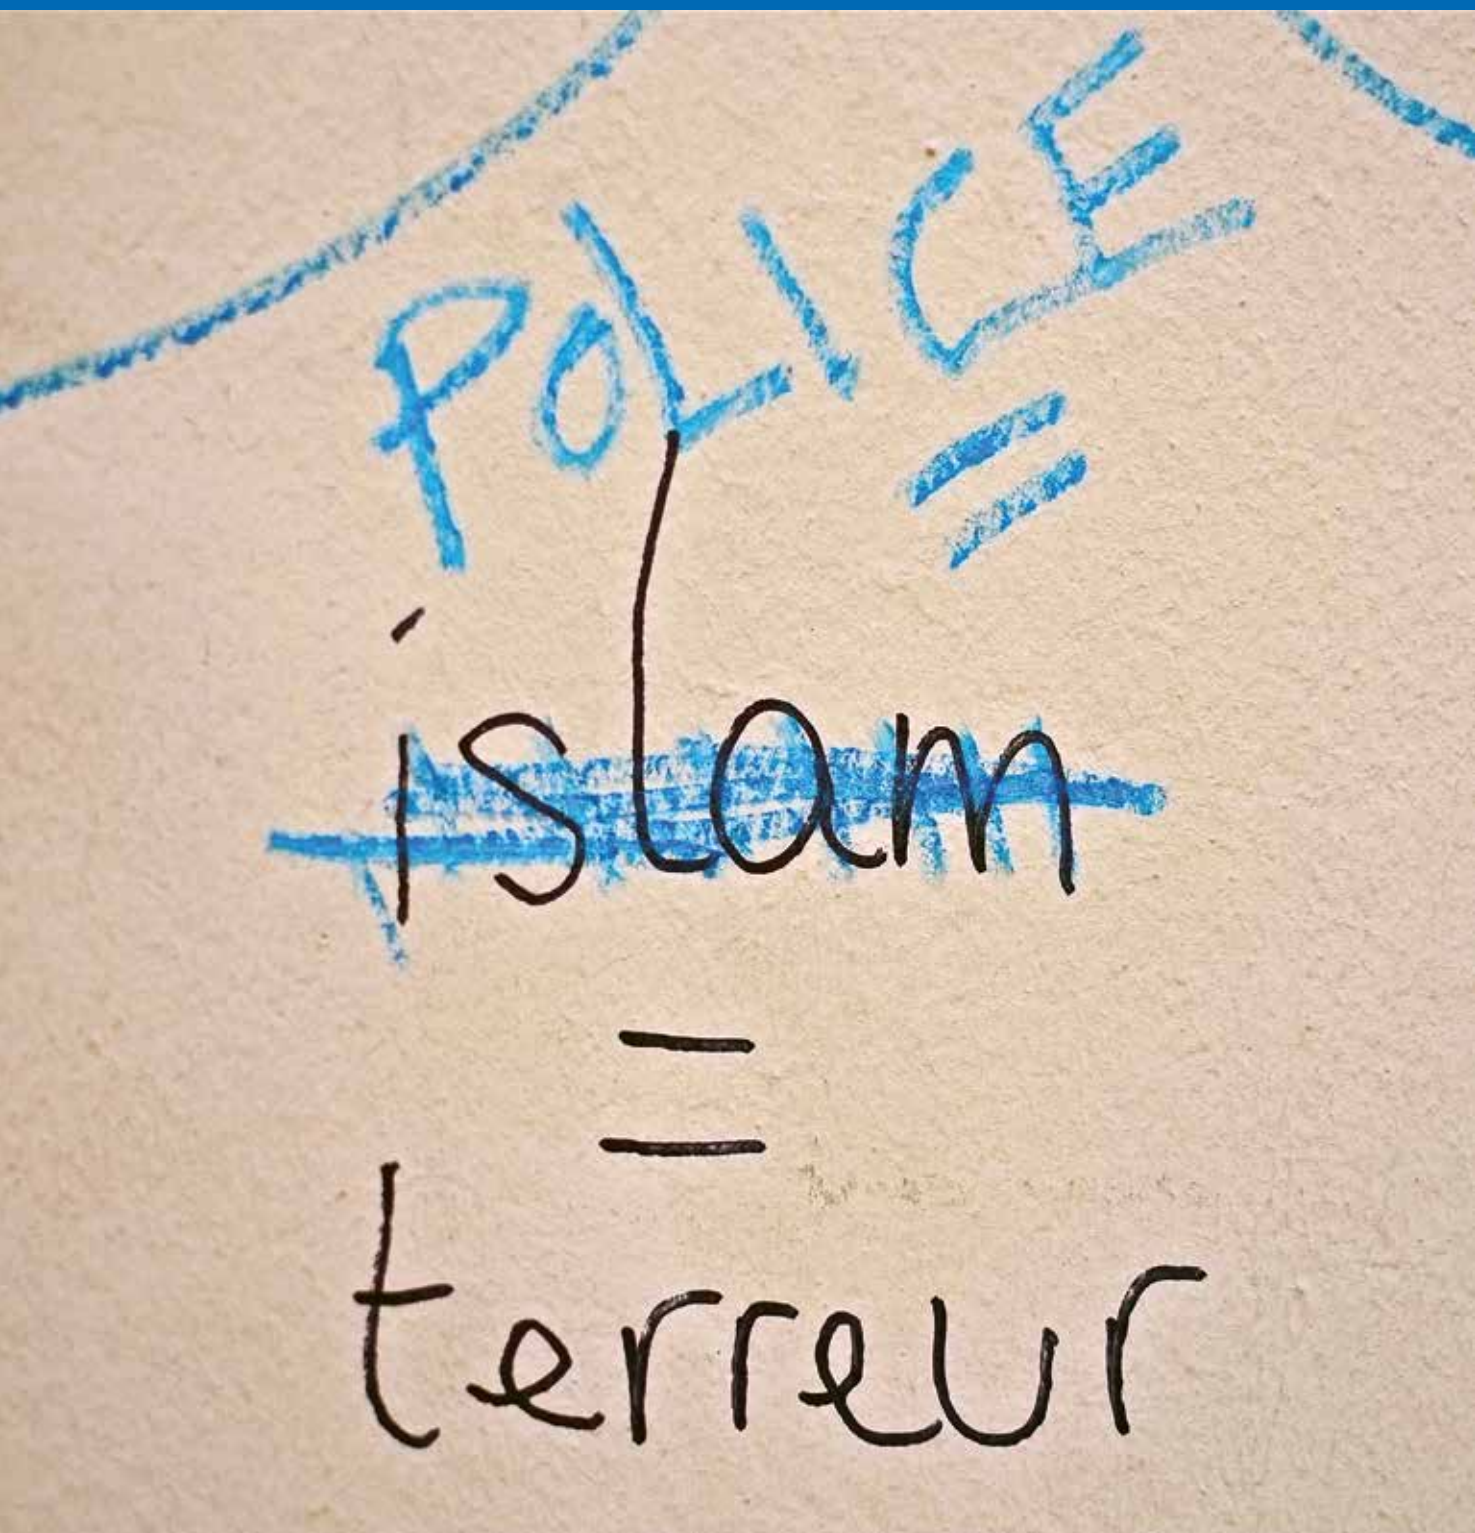 POLICE
=
islam
=
terreur